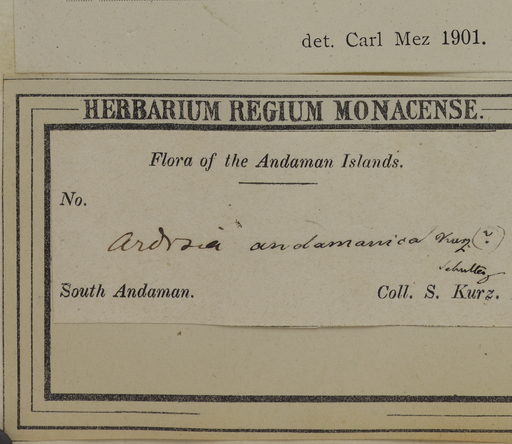 det. Carl Mez 1901.
HERBARIUM REGIUM MONACENSE.
Flora of the Andaman Islands.
No.
Ardisia andamanica Kurz (?)
South Andaman.
Coll. S. Kurz.